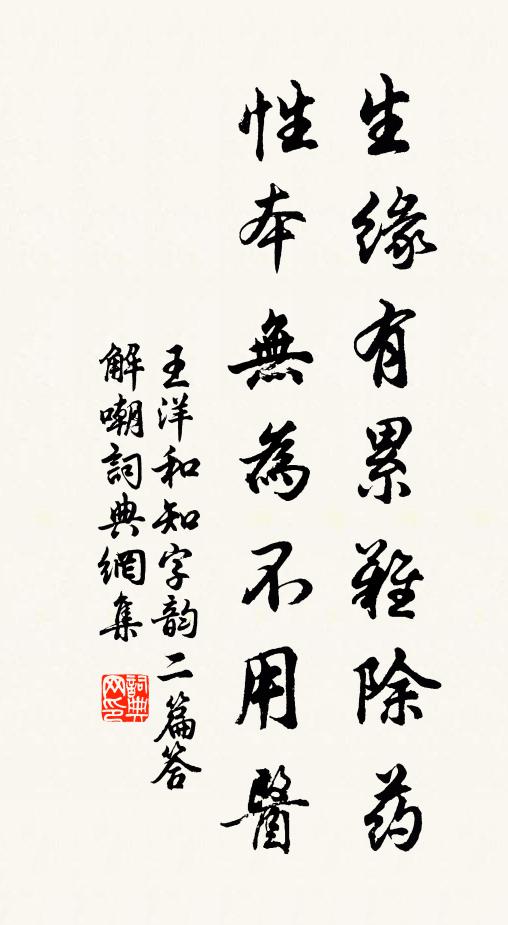 生缘有累难除药
性本無為不用醫
王洋和知字韵二篇答
解嘲詞典網集
詞典
网印